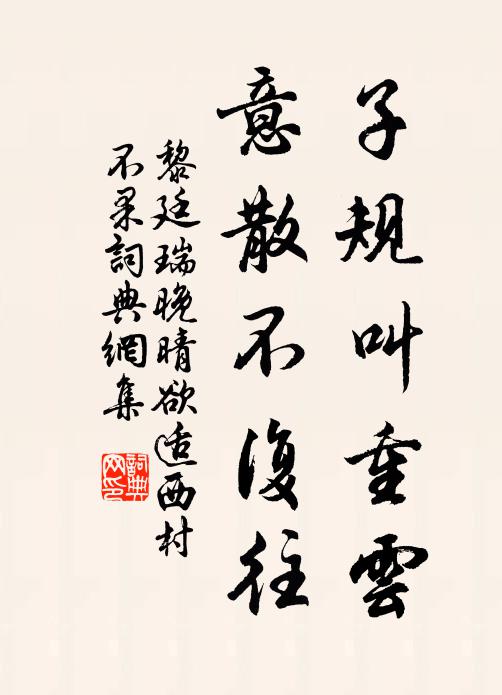 子規叫重雲
意散不復往
黎廷瑞晚晴欲适西村
不果詞典網集
詞典
网印